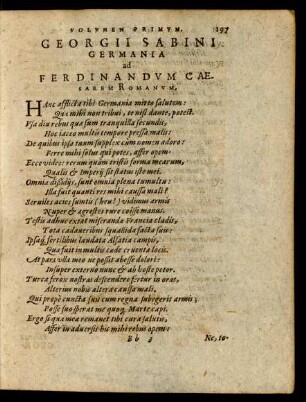 VOLVMEN PRIMVM. 197
GEORGII SABINI
GERMANIA
ad
FERDINANDVM CAE-
SAREM ROMANVM.
HAnc afflicta tibi Germania mitto salutem:
Quæ mihi non tribui, te nisi dante, potest.
Vsa diu rebus quasum tranquilla secundis,
Hoc iaceo multis tempore pressa malis:
De quibus ipsa tuum supplex cum nomen adoro:
Ferre mihi solus qui potes, affer opem.
Ecce vides rerum quàm tristis forma mearum,
Qualis & Imperij sit status iste mei.
Omnia dissidijs, sunt omnia plena tumultu:
Illa fuit quanti res mihi caussa mali?
Seruiles acies sumtis (heu!) vidimus armis
Nuper & agrestes rure coisse manus.
Testis adhuc extat miseranda Francia cladis,
Tota cadaueribus squalida facta suis:
Ipsaq́, fertilibus laudata Alsatia campis,
Quæ fuit in multis cæde cruenta locis.
At pars vlla meo ne possit abesse dolori:
Insuper externo nunc & ab hoste petor.
Turca ferox nostras descendere fertur in oras,
Alterius nobis altera caussa mali,
Qui propè cuncta suis cum regna subegerit armis;
Posse suo sperat me quoq; Marte capi.
Ergo si qua mea remanet tibi cura salutis,
Affer in aduersis bis mihi rebus opem:
B b 3 Ne, to-